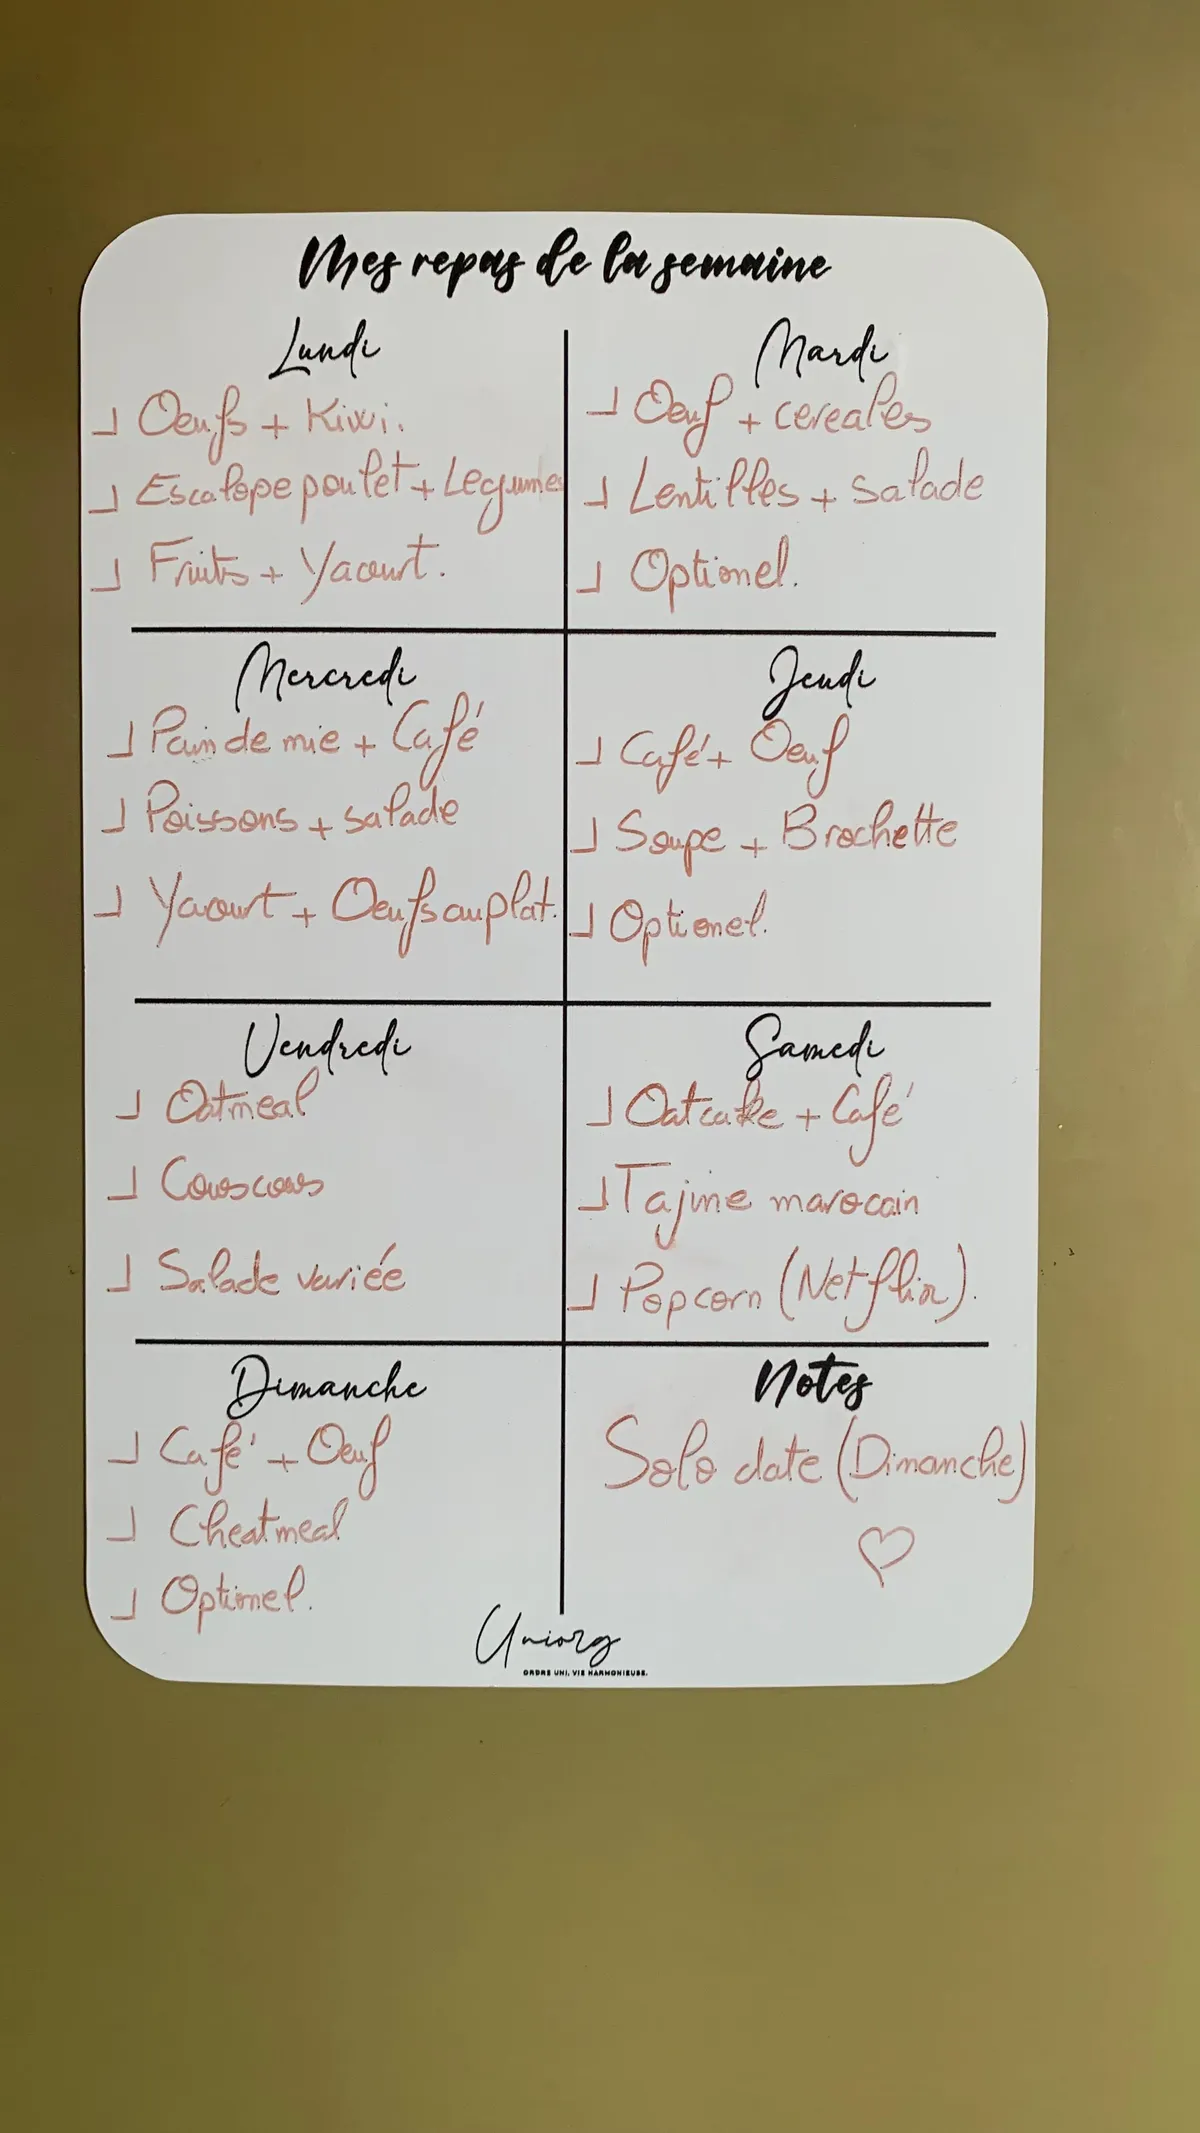 Mes repas de la semaine
Lundi
Oeufs + Kiwi.
Escalope poulet + Legumes
Fruits + Yaourt.
Mardi
Oeuf + cereales
Lentilles + salade
Optionel.
Mercredi
Pain de mie + Café
Poissons + salade
Yaourt + Oeufs au plat.
Jeudi
Café + Oeuf
Soupe + Brochette
Optionel.
Vendredi
Oatmeal
Couscous
Salade variée
Samedi
Oatcake + Café
Tajine marocain
Popcorn (Netflix).
Dimanche
Café + Oeuf
Cheatmeal
Optionel.
Notes
Solo date (Dimanche)
Uniorg
ORDRE UNI, VIE HARMONIEUSE.